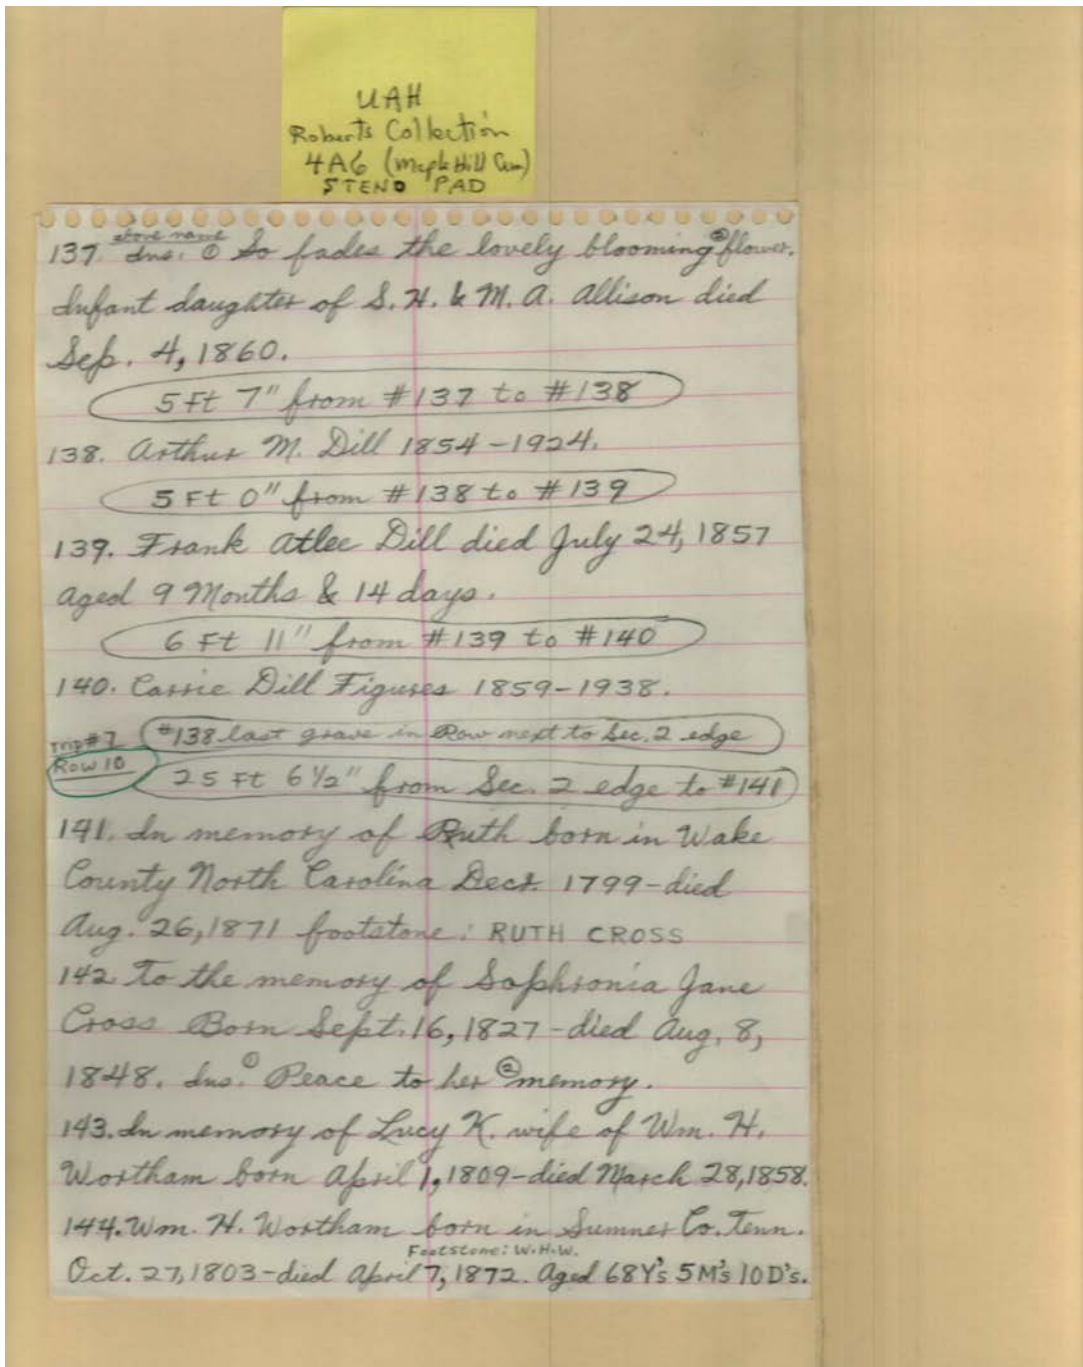 UAH
Roberts Collection
4A6 (Maple Hill Cem)
STENO PAD
above name
137. Ins. ① So fades the lovely blooming ② flower.
Infant daughter of S. H. & M. A. Allison died
Sep. 4, 1860.
5 Ft 7" from #137 to #138
138. Arthur M. Dill 1854-1924.
5 Ft 0" from #138 to #139
139. Frank Atlee Dill died July 24, 1857
aged 9 Months & 14 days.
6 Ft 11" from #139 to #140
140. Carrie Dill Figures 1859-1938.
Trip #7 #138 last grave in Row next to Sec. 2 edge
Row 10 25 Ft 6 1/2" from Sec. 2 edge to #141
141. In memory of Ruth born in Wake
County North Carolina Decr. 1799-died
Aug. 26, 1871 footstone: RUTH CROSS
142 To the memory of Sophronia Jane
Cross Born Sept. 16, 1827-died Aug. 8,
1848. Ins. ① Peace to her ② memory.
143. In memory of Lucy K. wife of Wm. H.
Wortham born April 1, 1809-died March 28, 1858.
144. Wm. H. Wortham born in Sumner Co. Tenn.
Footstone: W.H.W.
Oct. 27, 1803-died April 7, 1872. Aged 68Y's 5M's 10D's.